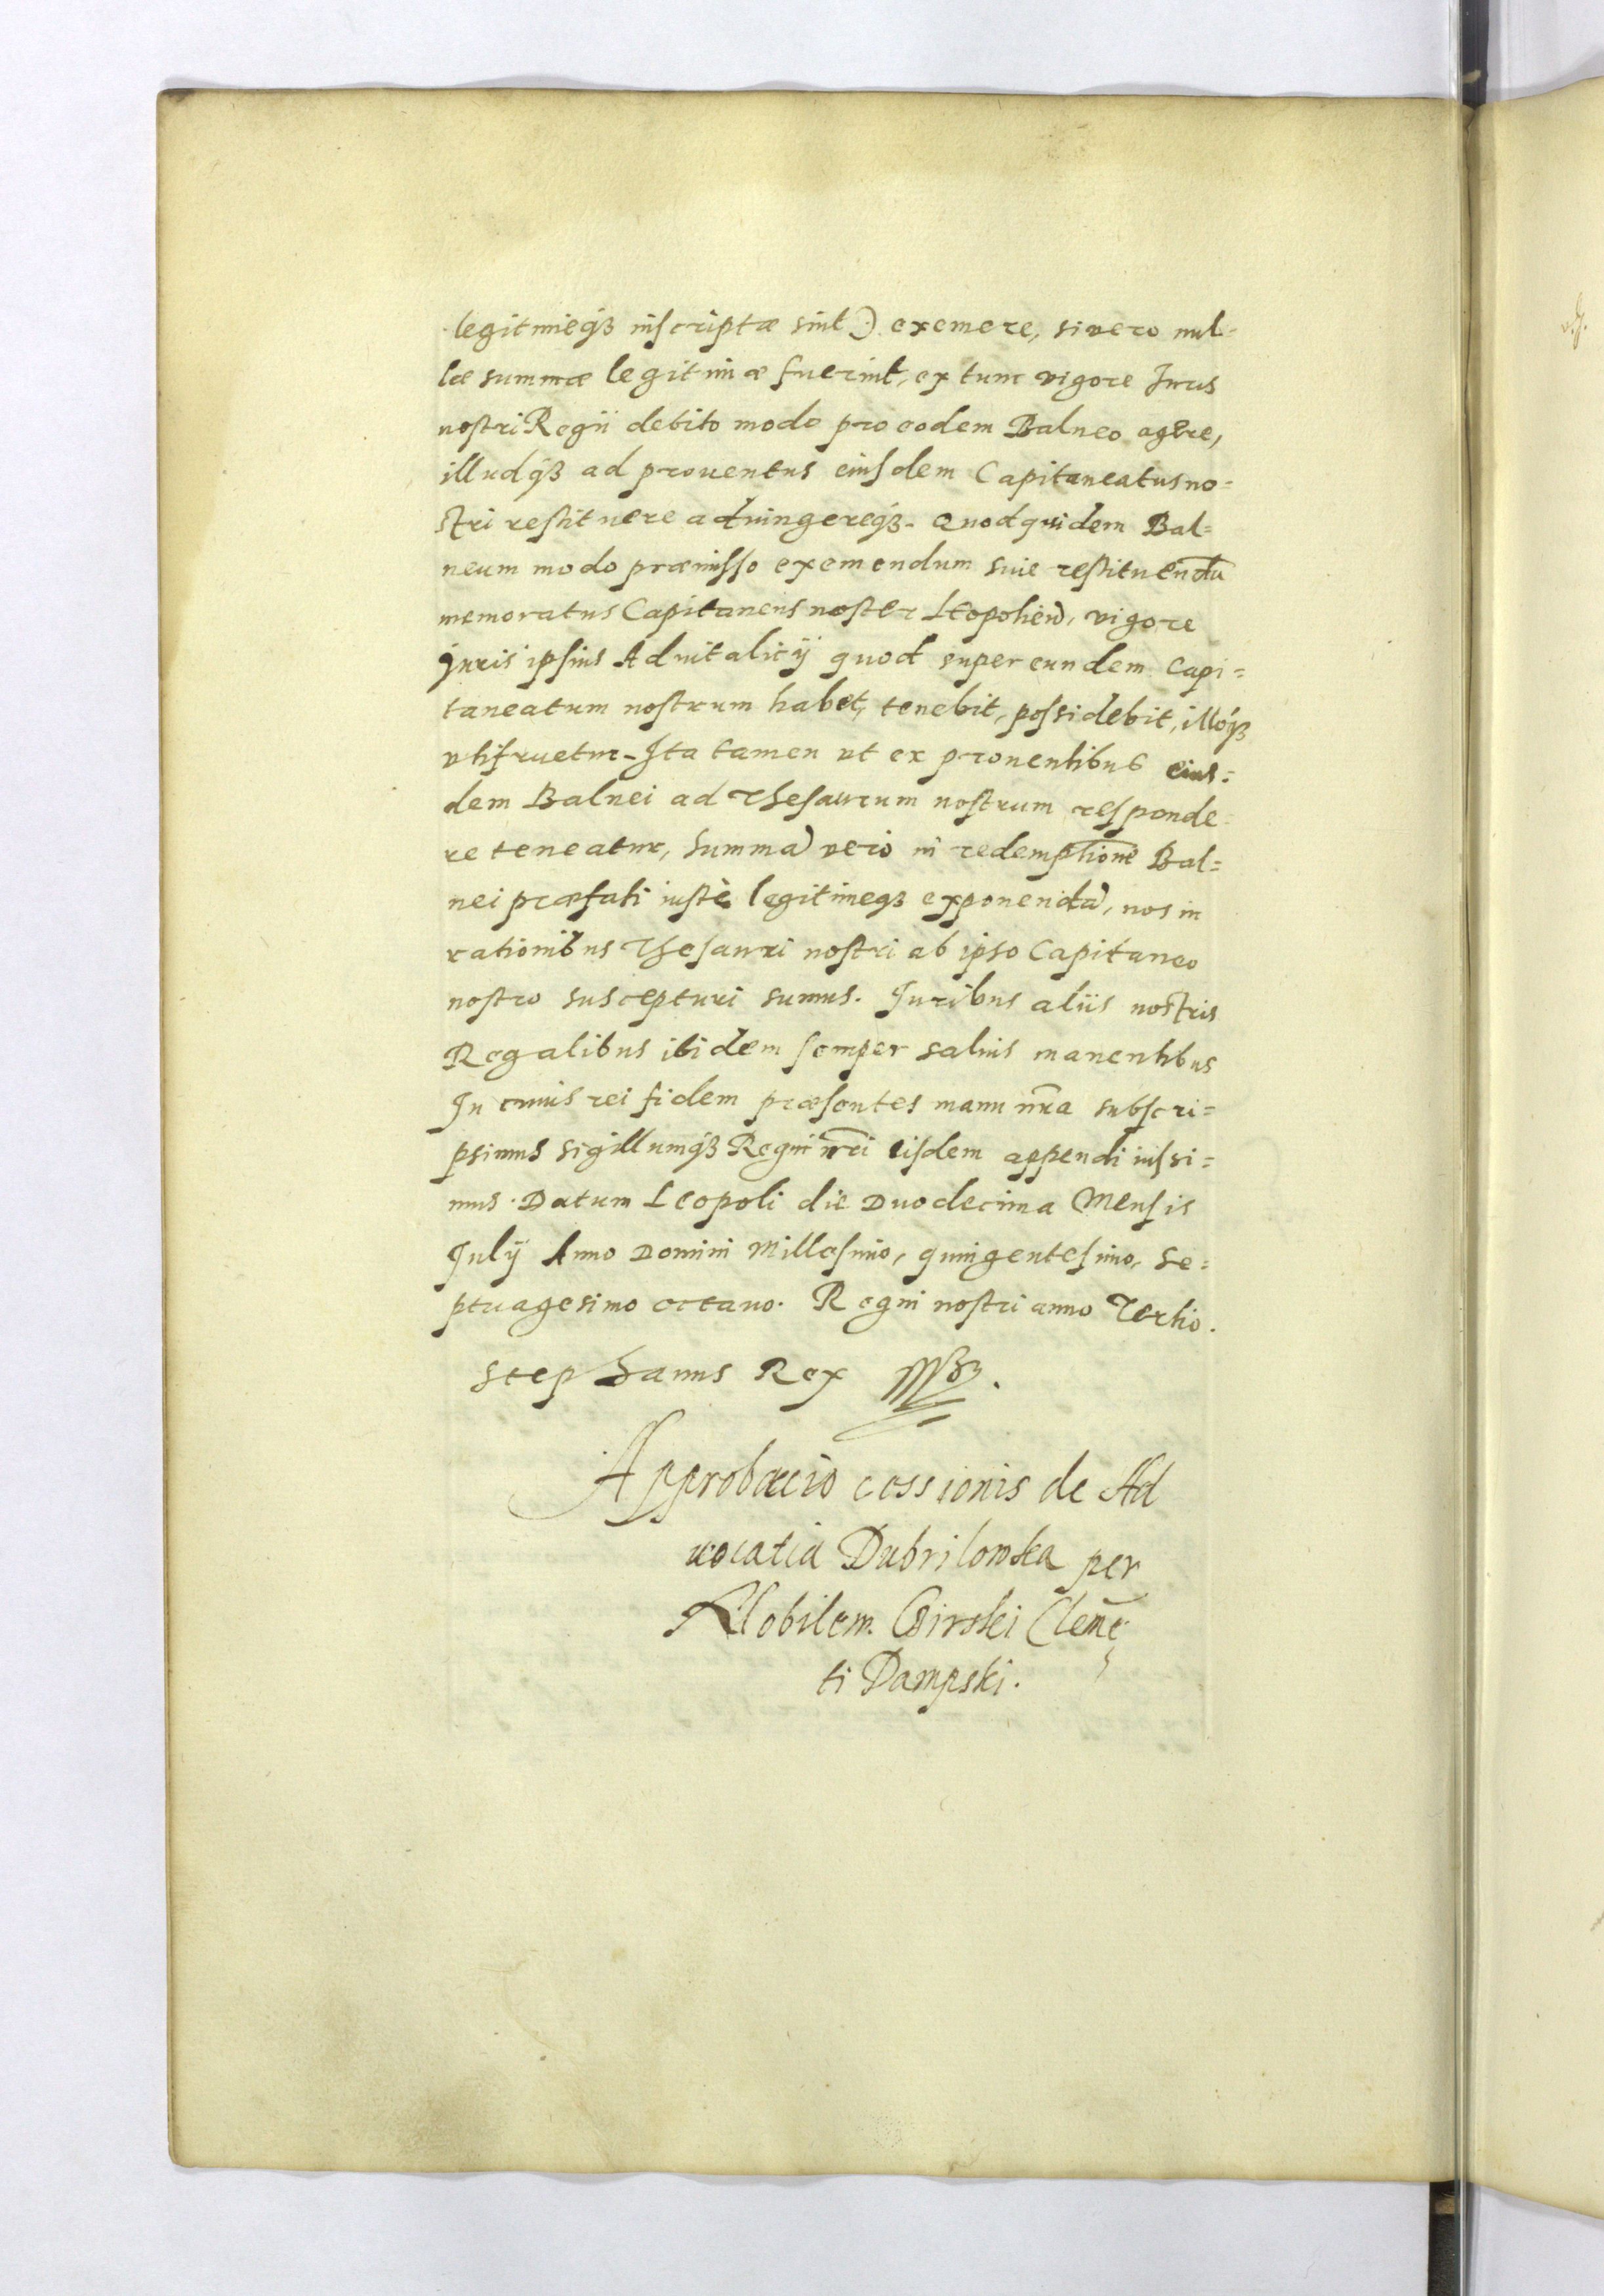 legitimieqꝫ inscriptæ sint) exemere, si vero nul-
læ summæ legitimæ fuerint, ex tunc vigore Juris
nostri Regii debito modo pro eodem Balneo agere,
illudqꝫ ad prouentus eiusdem Capitaneatus no=
stri restituere aduingereqꝫ. Quod quidem Bal=
neum modo præmisso exemendum siue restituendū
memoratus Capitaneus noster Leopolien, vigore
Juris ipsius Aduitalicÿ quod super eundem Capi=
taneatum nostrum habet, tenebit, possidebit, illoqꝫ
vtifruetur. Ita tamen vt ex prouentibus eius=
dem Balnei ad Thesaurum nostrum responde=
re teneatur, summa vero in redemptione Bal=
nei præfati iustè legitimeqꝫ exponenda, nos in
rationibus Thesauri nostri ab ipso Capitaneo
nostro suscepturi sumus. Juribus aliis nostris
Regalibus ibidem semper saluis manentibus
In cuius rei fidem præsentes manu nr̃a subscri=
psimus sigillumqꝫ Regni nr̃i eisdem appendi iussi=
mus. Datum Leopoli die Duodecima Mensis
Julÿ Anno Domini Millesimo, quingentesimo, se=
ptuagesimo octauo. Regni nostri anno Tertio.
Stephanus Rex
Approbacio cessionis de Ad
uocatia Dubrilowska per
Nobilem Girski Clemē
ti Dampski.